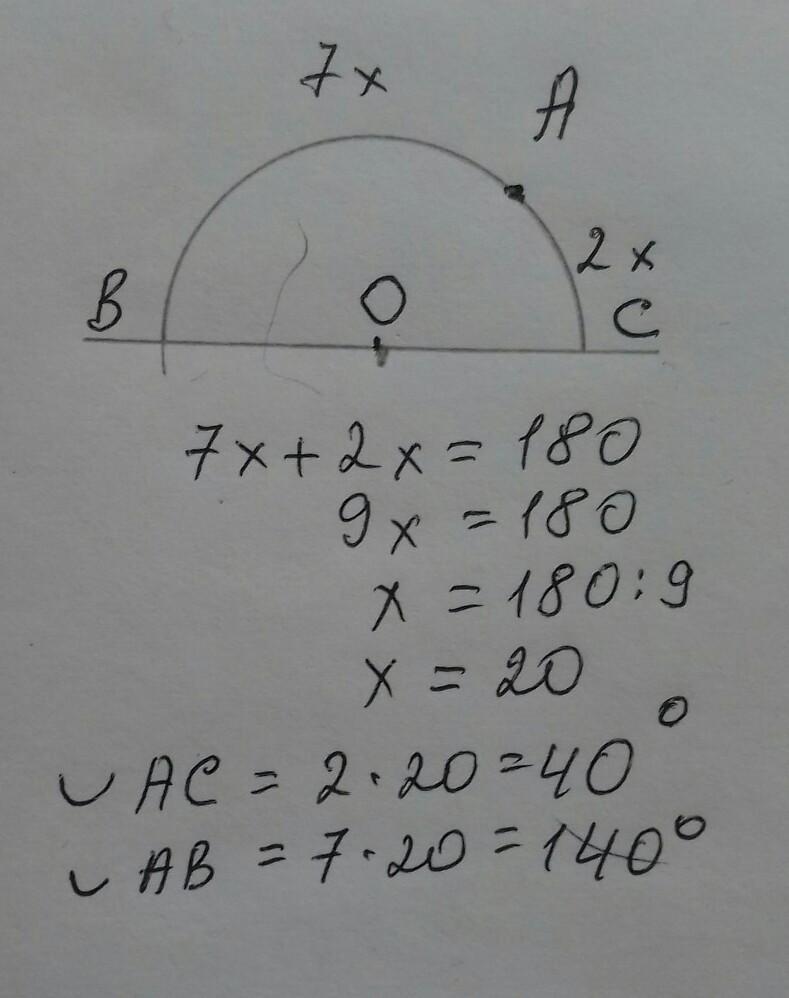 7x
A
2x
B
O
C
7x + 2x = 180
9x = 180
x = 180 : 9
x = 20
◡ AC = 2 · 20 = 40°
◡ AB = 7 · 20 = 140°